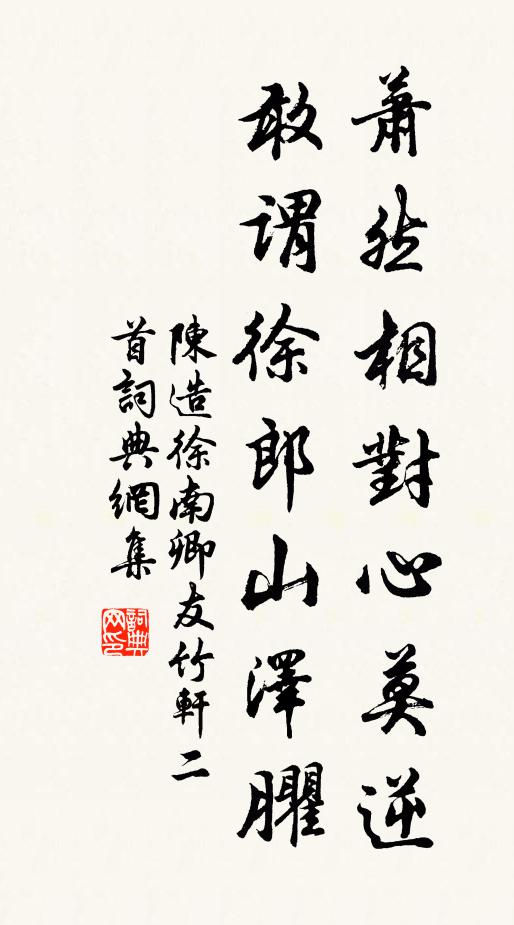 蕭然相對心莫逆
敢謂徐郎山澤臞
陳造徐南卿友竹軒二
首詞典網集
詞典网印